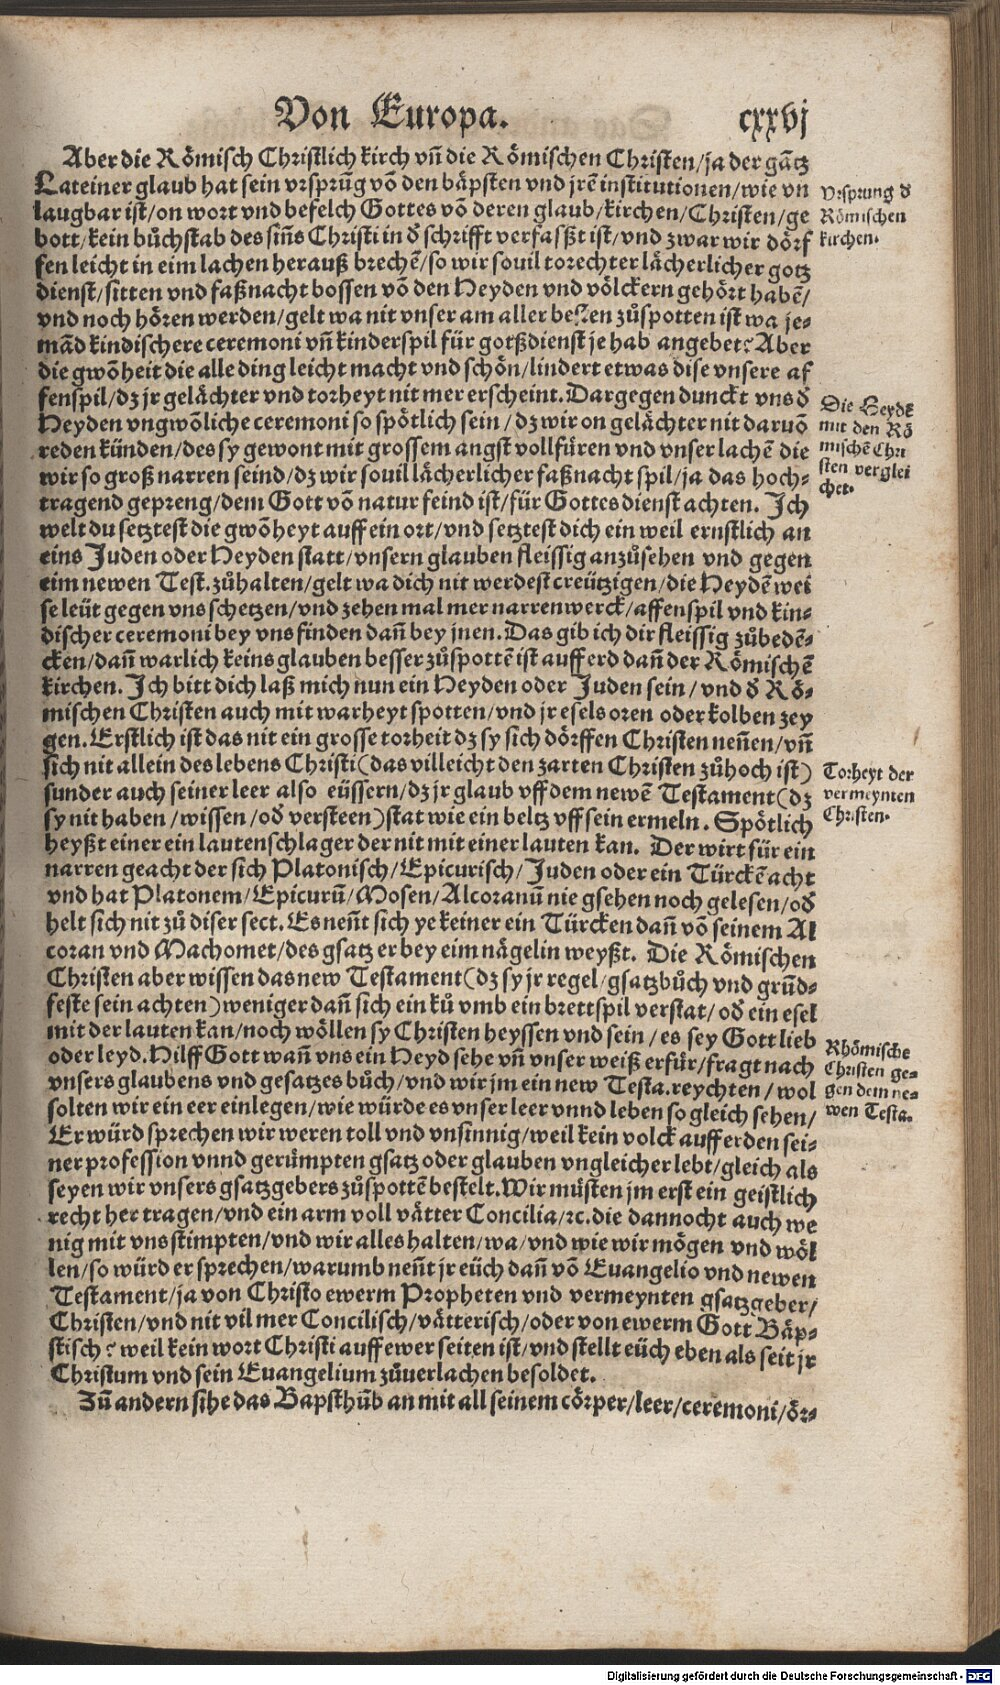 Von Europa. cxxvj
Aber die Römisch Christlich kirch vn̄ die Römischen Christen/ja der gātz
Lateiner glaub hat sein vrsprūg vō den bäpsten vnd jrē institutionen/wie vn
laugbar ist/on wort vnd befelch Gottes vō deren glaub/kirchen/Christen/ge
bott/kein bůchstab des siñs Christi in d̄ schrifft verfasßt ist/vnd zwar wir dörf
fen leicht in eim lachen herauß brechē/so wir souil torechter lächerlicher gotz
dienst/sitten vnd faßnacht bossen vō den Heyden vnd völckern gehört habē/
vnd noch hören werden/gelt wa nit vnser am aller besten zůspotten ist wa je-
mād kindischere ceremoni vn̄ kinderspil für gotßdienst je hab angebet? Aber
die gwōheit die alle ding leicht macht vnd schön/lindert etwas dise vnsere af
fenspil/dz jr gelächter vnd torheyt nit mer erscheint. Dargegen dunckt vns d̄
Heyden vngwōliche ceremoni so spötlich sein/dz wir on gelächter nit daruō
reden künden/des sy gewont mit grossem angst vollfüren vnd vnser lachē die
wir so groß narren seind/dz wir souil lächerlicher faßnacht spil/ja das hoch-
tragend gepreng/dem Gott vō natur feind ist/für Gottes dienst achten. Ich
welt du setztest die gwōheyt auff ein ort/vnd setztest dich ein weil ernstlich an
eins Juden oder Heyden statt/vnsern glauben fleissig anzůsehen vnd gegen
eim newen Test. zůhalten/gelt wa dich nit werdest creützigen/die Heydē wei
se leüt gegen vns schetzen/vnd zehen mal mer narrenwerck/affenspil vnd kin-
discher ceremoni bey vns finden dañ bey jnen. Das gib ich dir fleissig zůbedē-
cken/dañ warlich keins glauben besser zůspottē ist auff erd dañ der Römischē
kirchen. Ich bitt dich laß mich nun ein Heyden oder Juden sein/vnd d̄ Rö-
mischen Christen auch mit warheyt spotten/vnd jr esels oren oder kolben zey
gen. Erstlich ist das nit ein grosse torheit dz sy sich dörffen Christen neñen/vn̄
sich nit allein des lebens Christi(das villeicht den zarten Christen zůhoch ist)
sunder auch seiner leer also eüssern/dz jr glaub vff dem newē Testament(dz
sy nit haben/wissen/od̄ versteen)stat wie ein beltz vff sein ermeln. Spötlich
heyßt einer ein lautenschlager der nit mit einer lauten kan. Der wirt für ein
narren geacht der sich Platonisch/Epicurisch/Juden oder ein Türckē acht
vnd hat Platonem/Epicurū/Mosen/Alcoranū nie gsehen noch gelesen/od̄
helt sich nit zů diser sect. Es neñt sich ye keiner ein Türcken dañ vō seinem Al
coran vnd Machomet/des gsatz er bey eim nägelin weyßt. Die Römischen
Christen aber wissen das new Testament(dz sy jr regel/gsatzbůch vnd grūd-
feste sein achten)weniger dañ sich ein ků vmb ein brettspil verstat/od̄ ein esel
mit der lauten kan/noch wöllen sy Christen heyssen vnd sein/es sey Gott lieb
oder leyd. Hilff Gott wañ vns ein Heyd sehe vn̄ vnser weiß erfür/fragt nach
vnsers glaubens vnd gesatzes bůch/vnd wir jm ein new Testa. reychten/wol
solten wir ein eer einlegen/wie würde es vnser leer vnnd leben so gleich sehen/
Er würd sprechen wir weren toll vnd vnsinnig/weil kein volck auff erden sei-
ner profession vnnd gerümpten gsatz oder glauben vngleicher lebt/gleich als
seyen wir vnsers gsatzgebers zůspottē bestelt. Wir müsten jm erst ein geistlich
recht her tragen/vnd ein arm voll vätter Concilia/ꝛc. die dannocht auch we
nig mit vns stimpten/vnd wir alles halten/wa/vnd wie wir mögen vnd wöl
len/so würd er sprechen/warumb neñt jr eüch dañ vō Euangelio vnd newen
Testament/ja von Christo ewerm Propheten vnd vermeynten gsatzgeber/
Christen/vnd nit vil mer Concilisch/vätterisch/oder von ewerm Gott Bäp-
stisch? weil kein wort Christi auff ewer seiten ist/vnd stellt eüch eben als seit jr
Christum vnd sein Euangelium zůuerlachen besoldet.
Zů andern sihe das Bapsthūb an mit all seinem cörper/leer/ceremoni/ör-
Vrsprung d̄
Römischen
kirchen.
Die Heydē
mit den Rö
mischē Chri
sten verglei
chet.
Torheyt der
vermeynten
Christen.
Rhömische
Christen ge-
gen dem ne-
wen Testa.
Digitalisierung gefördert durch die Deutsche Forschungsgemeinschaft - DFG